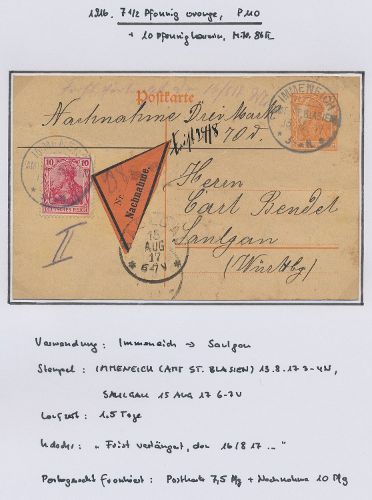 1916. 7 1/2 Pfennig orange, P 110
+ 10 Pfennig karmin, Mi. Nr. 86 II
Postkarte
Nachnahme Drei Mark
70 Pf.
Frist 14/8
IMMENEICH
IMMENEICH
AMT ST. BLASIEN
10 10
DEUTSCHES REICH
Nr.
Nachnahme.
Herrn
Carl Bendel
Saulgau
(Württbg)
II
15
AUG
17
6-7V
Verwendung: Immeneich → Saulgau
Stempel: IMMENEICH (AMT ST. BLASIEN) 13.8.17 3-4N,
SAULGAU 15 AUG 17 6-7V
Laufzeit: 1.5 Tage
Indossi: "Frist verlängert, den 16/8 17 ..."
Portogerecht frankiert: Postkarte 7,5 Pfg + Nachnahme 10 Pfg